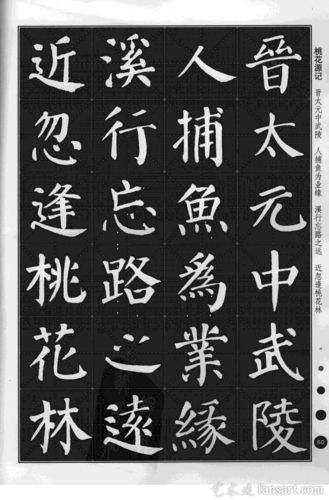 晉太元中武陵
人捕魚爲業緣
溪行忘路之遠
近忽逢桃花林
桃花源记
晋太元中武陵 人捕鱼为业缘 溪行忘路之远 近忽逢桃花林
60
艺术迷 fansart.com